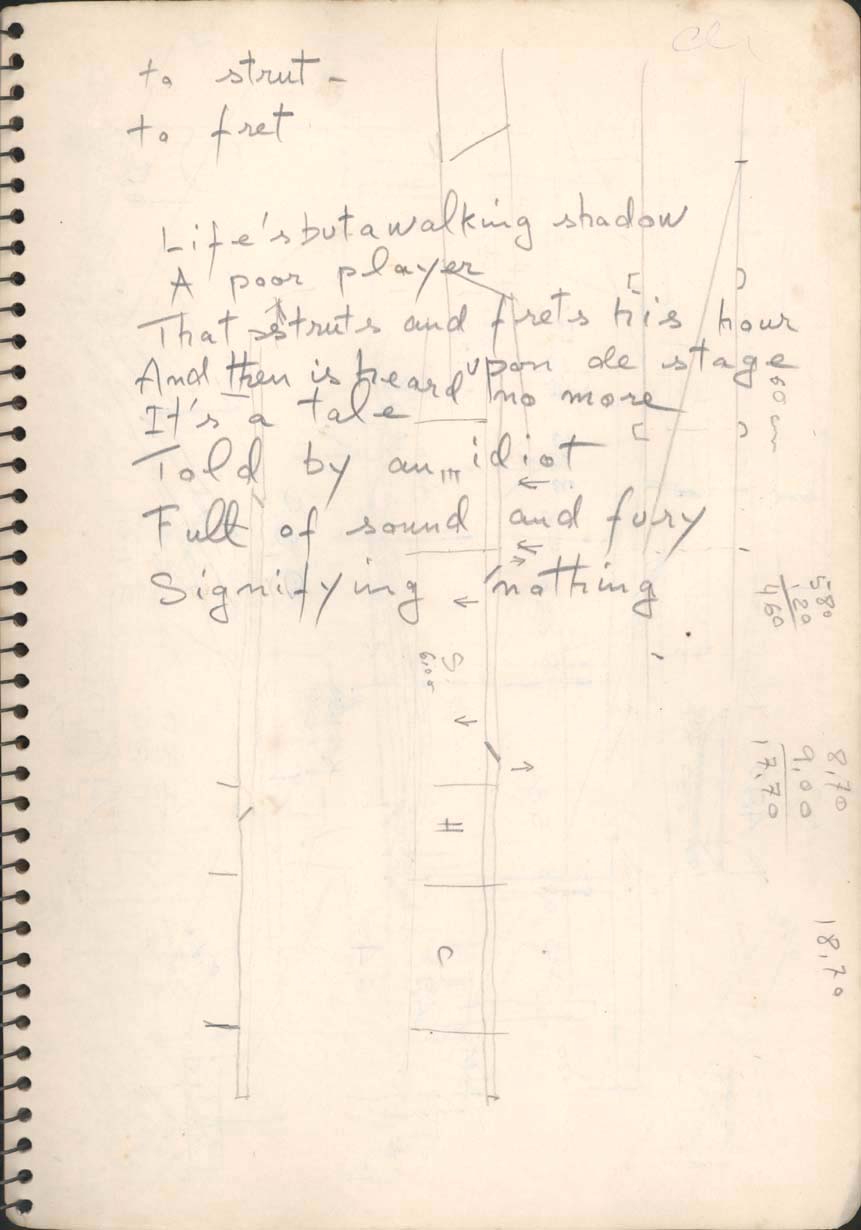 to strut -
to fret
Life's but a walking shadow
A poor player
That struts and frets his hour
upon de stage
And then is heard no more
It's a tale
Told by an idiot
Full of sound and fury
Signifying nothing
60 cm
580
120
460
8,70
9,00
17,70
18,70
H
C